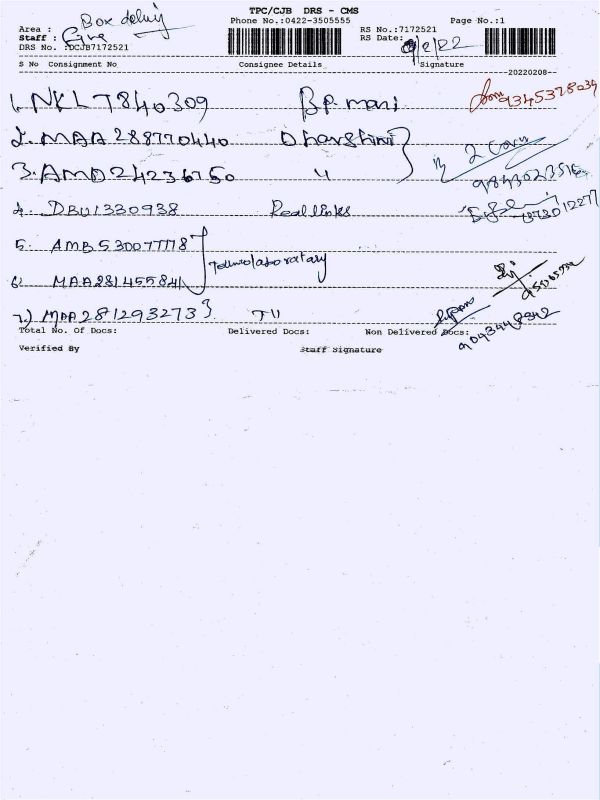 TPC/CJB DRS - CMS
Area : Box
Phone No.:0422-3505555
Page No.:1
Staff :
RS No.:7172521
DRS No. :DCJB7172521
RS Date: 9/2/22
S No Consignment No Consignee Details Signature
20220208
1. NKLT840309 B.P. mani
2. MAA288770440 Dharshini
3. AMD24236750 "
4. DBU1330938 Real links
5. AMB530077718
6. MAA281455841
7.) MAA281293273 TU
Total No. Of Docs: Delivered Docs: Non Delivered Docs:
9043448342
Verified By Staff Signature